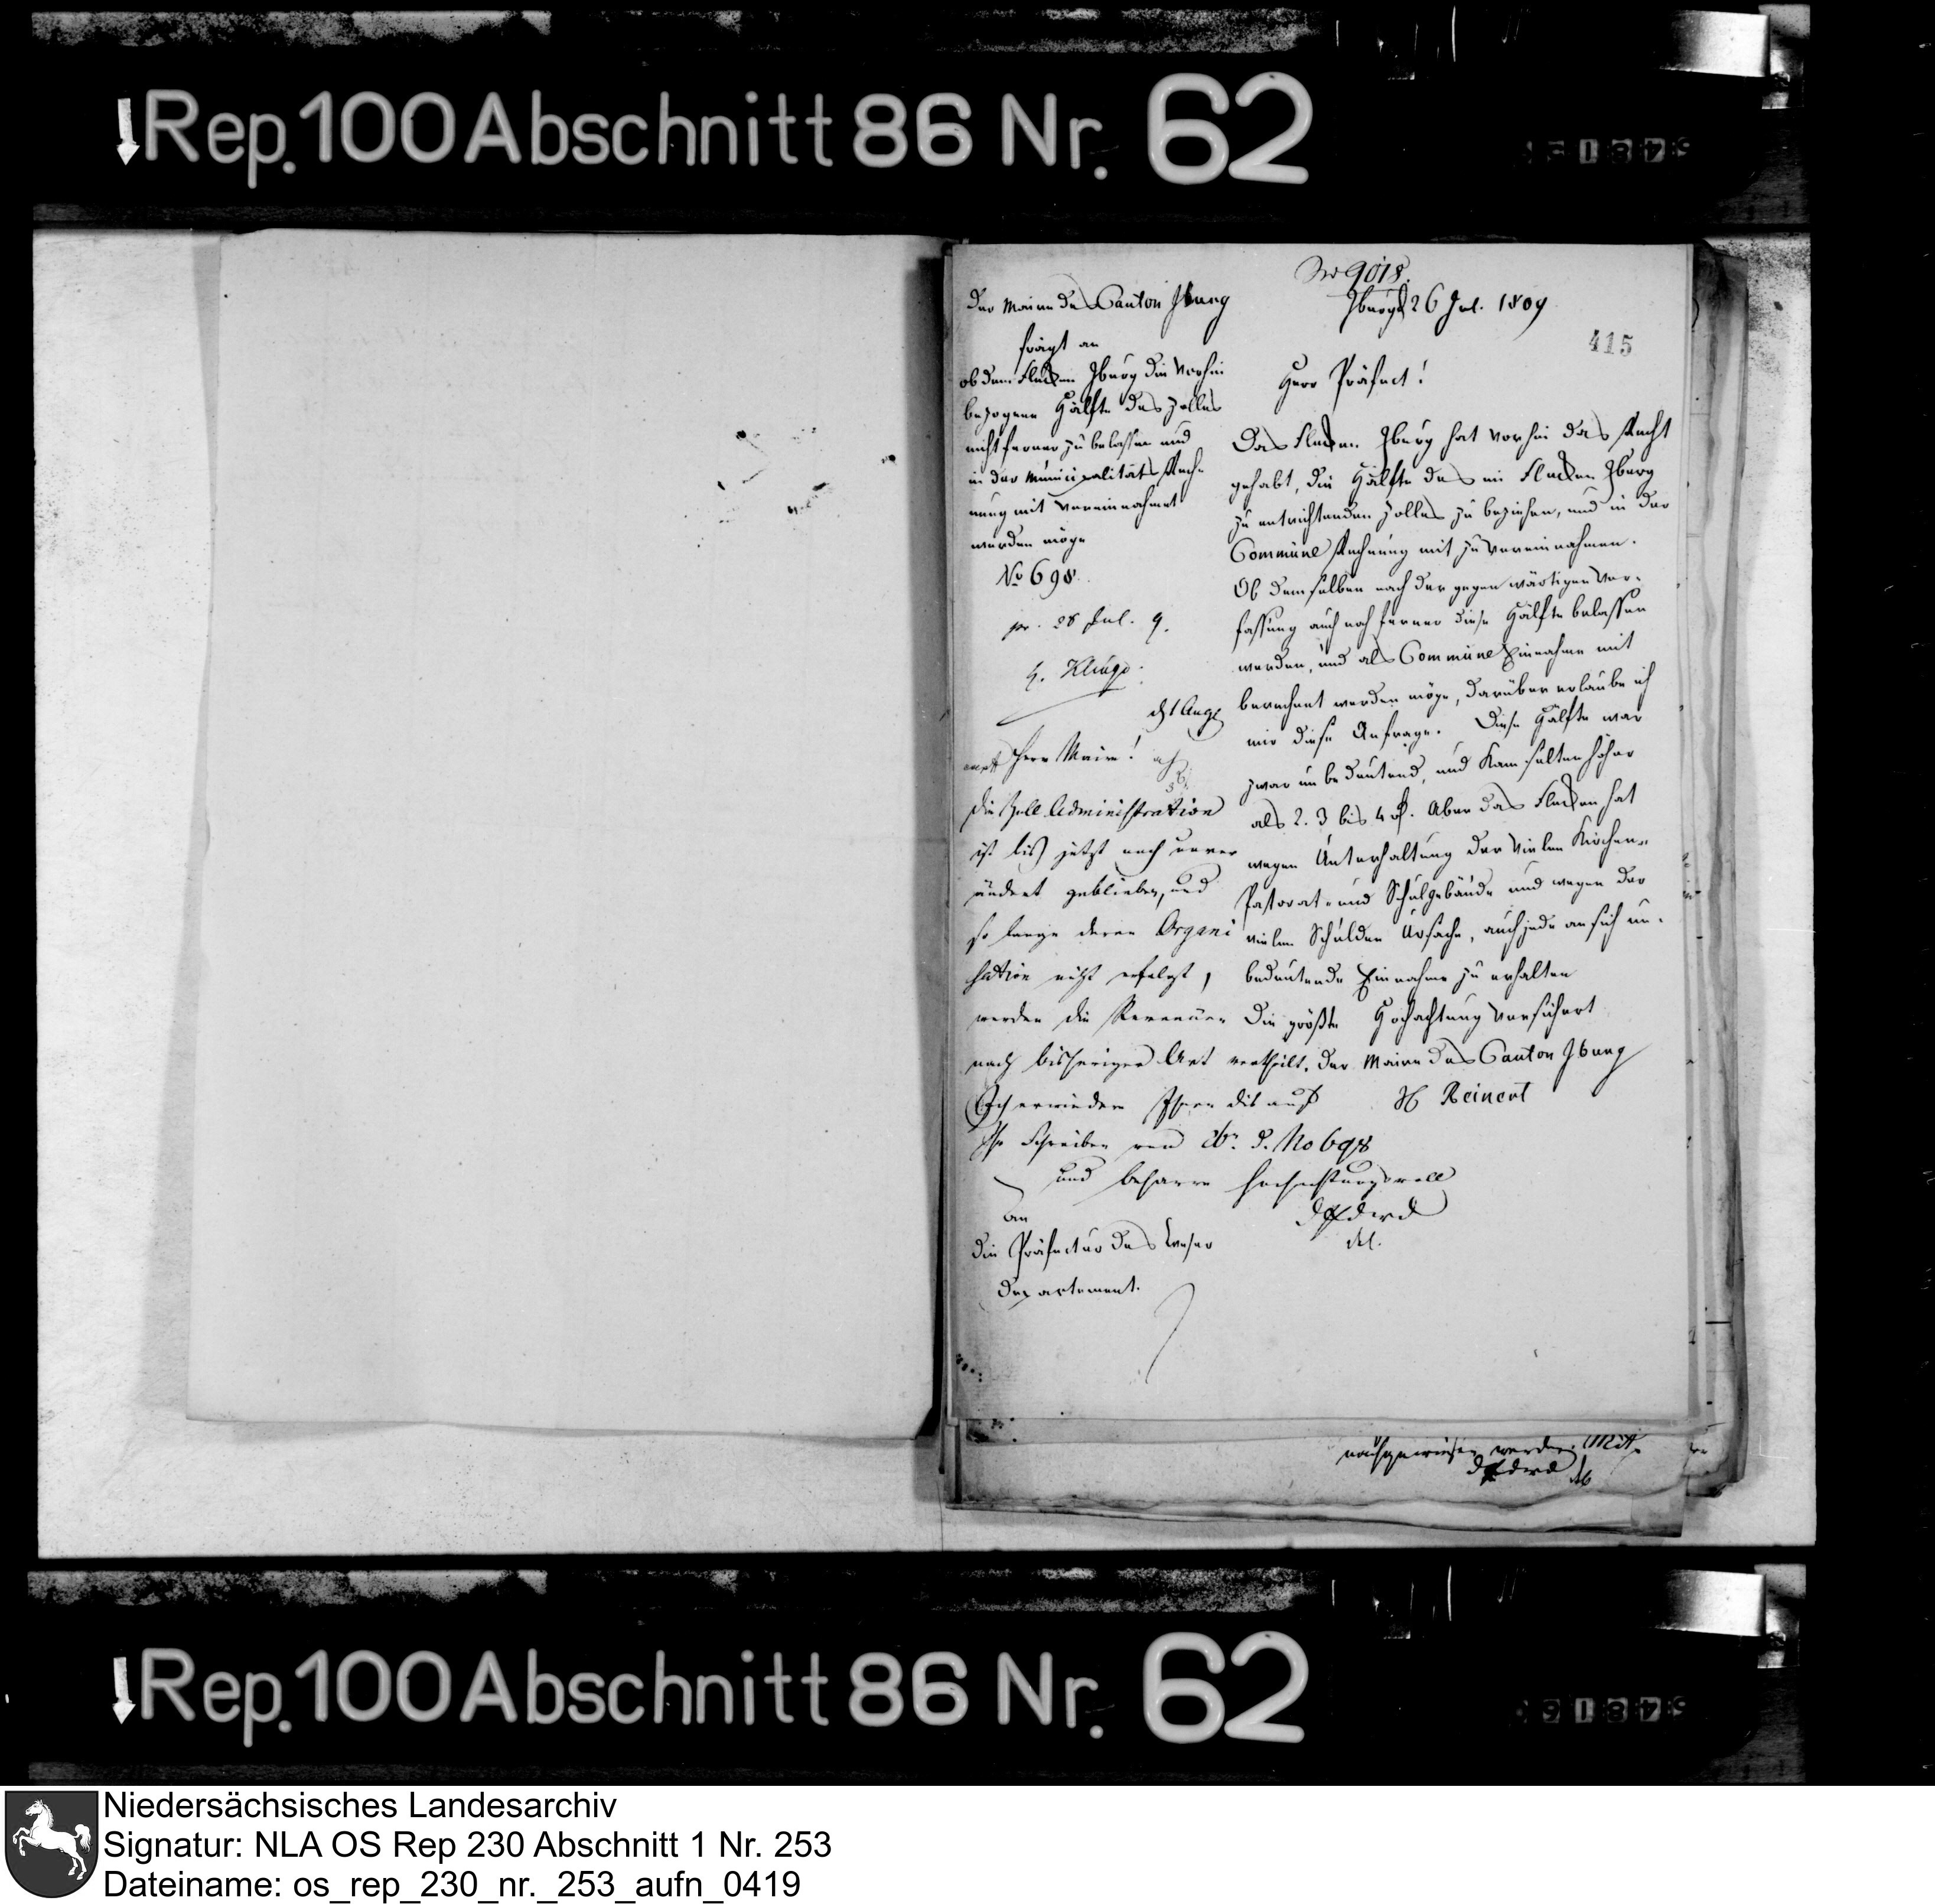 Rep. 100 Abschnitt 86 Nr. 62
Nr 9018.
Iburg d 26 Jul. 1809
415
Der Maire des Canton Iburg
frägt an
ob dem Flecken Iburg die vorhin
bezogene Hälfte des Zolles
nicht ferner zu belassen und
in der Municipalitäts Rech-
nung mit vereinnahmet
werden möge
No 698.
pr. 28 Jul. 9.
Herr Präfect!
Das Flecken Iburg hat vorhin das Recht
gehabt, die Hälfte des im Flecken Iburg
zu entrichtenden Zolles zu beziehen, und in der
Commüne Rechnung mit zu vereinnahmen.
Ob demselben nach der gegenwärtigen Ver-
fassung auch noch ferner diese Hälfte belassen
werden, und als Commüne Einnahme mit
berechnet werden möge, darüber erlaube ich
mir diese Anfrage. Diese Hälfte war
zwar unbedeutend, und kam selten höher
als 2. 3 bis 4 rt. Aber das Flecken hat
wegen Unterhaltung der vielen Kirchen-
Pastorat- und Schulgebäude und wegen der
vielen Schulden Ursache, auch jede an sich un-
bedeutende Einnahme zu erhalten
Die größte Hochachtung versichert
Der Maire des Canton Iburg
Reinert
An
die Präfectur des Weser
Departement.
d 1 Aug
Herr Maire!
Die Zoll Administration
ist bis jetzt noch unver
ändert geblieben, und
so lange deren Organi
sation nicht erfolgt,
werden die Revenüen
nach bisheriger Art vertheilt.
Ich erwiedere Ihnen dis auf
Ihr Schreiben von No 698
und beharre hochachtungsvoll
nachgewiesen werden.
Rep. 100 Abschnitt 86 Nr. 62
Niedersächsisches Landesarchiv
Signatur: NLA OS Rep 230 Abschnitt 1 Nr. 253
Dateiname: os_rep_230_nr._253_aufn_0419